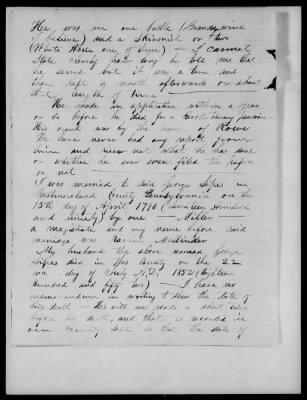 He was in one battle (Brandywine
I believe) and a Skirmish or two
(White Plains one of them) — I cannot
State exactly how long he told me that
he served but it was a time and
then left a month afterwards or about
that length of time
He made an application within a year
or so before he died, for a Revolutionary pension
His agent was by the name of Rowe
We have never had any report from
him and know not what he has done
or whether he ever even filed the papers
or not —
I was married to said George Sipes in
Westmoreland County Pennsylvania on the
15th day of April 1796 (Seventeen hundred
and ninety six by one — Miller —
a magistrate and my name before said
marriage was
My husband the above named George
Sipes died in this County on the 22
day of July A.D. 1852 (Eighteen
hundred and fifty two) — I have no
memorandum in writing to show the date of
his death — His will was made a short time
before his death, and that is recorded in
our County but so that the date of